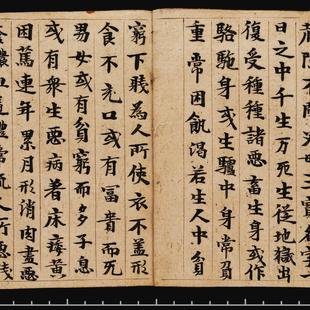 光明三寶名字一
日之中千生万死從地獄出
復受種種諸惡畜生身或作
駱駝身或生驢中身常負
重常困飢渴若生人中貧
窮下賤為人所使衣不蓋形
食不充口或有富貴而死
男女或有貧窮而多子息
或有衆生惡病著床黃
困篤連年累月形消肉盡惡
瘡膿血常流人所惡賤